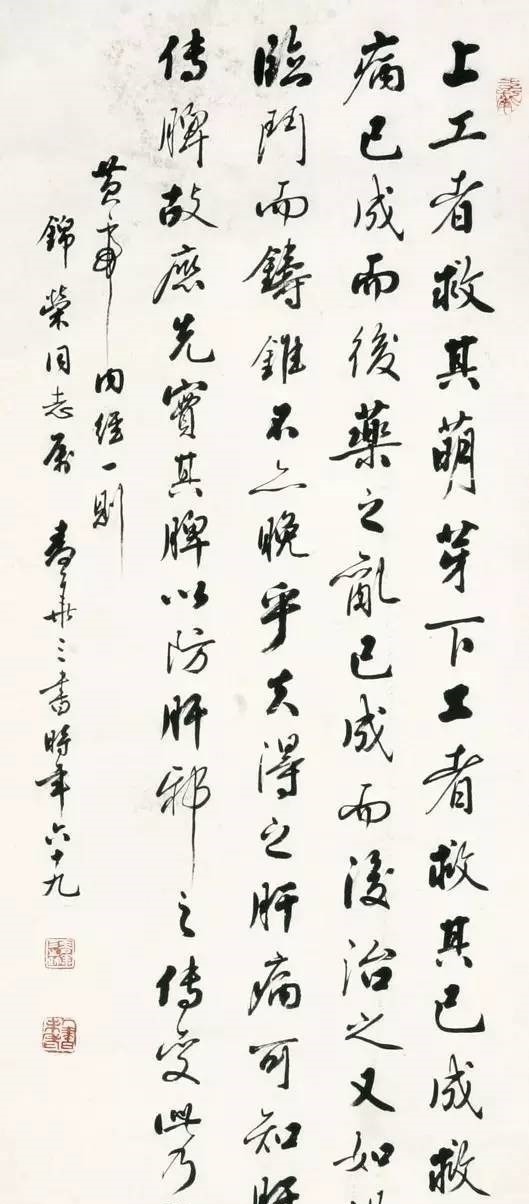 上工者救其萌芽下工者救其已成救
病已成而後藥之亂已成而後治之又如
臨鬥而鑄錐不亦晚乎夫得之肝病可知肝
傳脾故應先實其脾以防肝邪之傳變此乃
黃帝內經一則
錦榮同志屬 書時年六十九